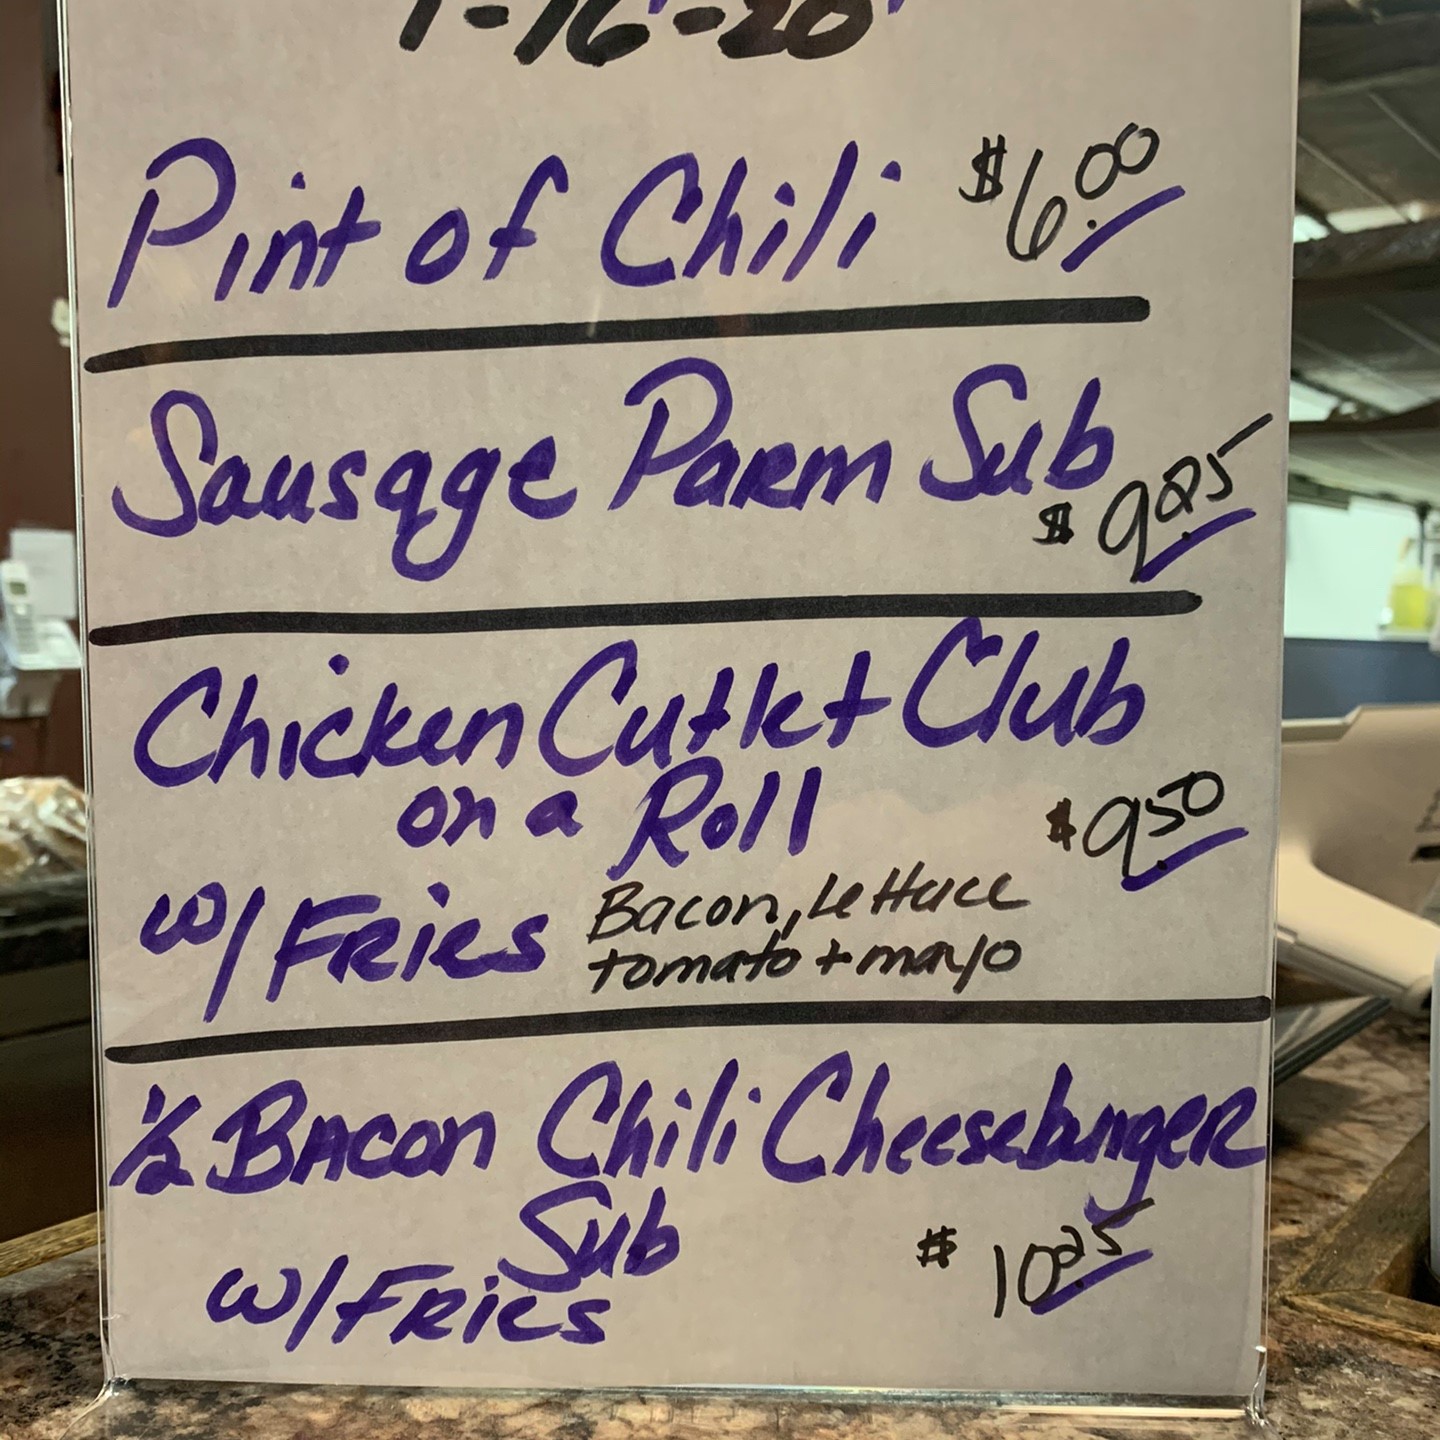 1-16-20
Pint of Chili $6.00
Sausage Parm Sub
$9.25
Chicken Cutlet Club
on a Roll $9.50
w/ Fries Bacon, Lettuce
tomato + mayo
1/2 Bacon Chili Cheeseburger
Sub $10.25
w/ Fries